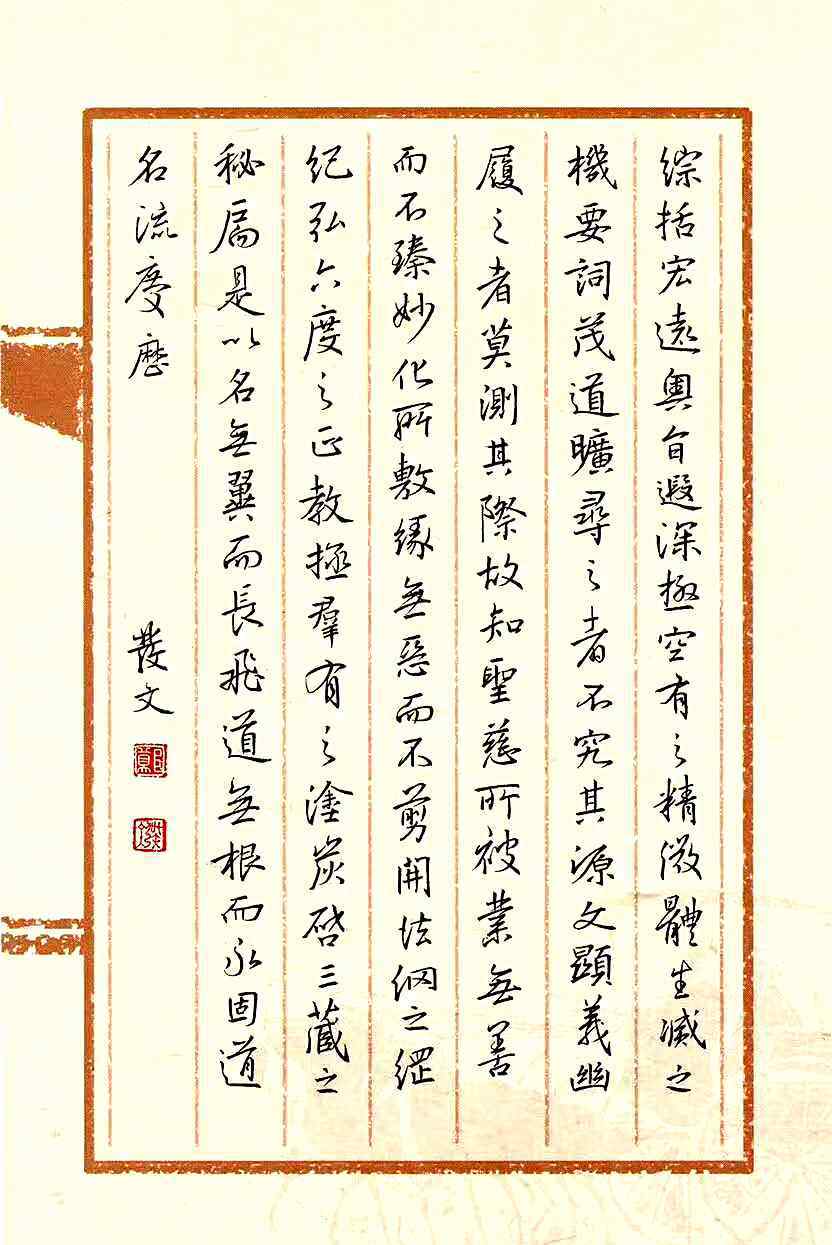 綜括宏遠奧旨遐深極空有之精微體生滅之
機要詞茂道曠尋之者不究其源文顯義幽
履之者莫測其際故知聖慈所被業無善
而不臻妙化所敷緣無惡而不剪開法網之綱
紀弘六度之正教拯羣有之塗炭啓三藏之
秘扃是以名無翼而長飛道無根而永固道
名流慶歷
發文